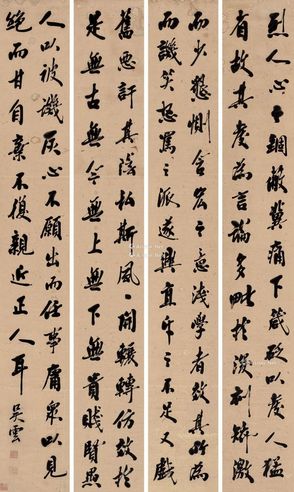 烈人心之錮蔽冀痛下箴砭以發人猛
省故其發為言論多毗於深刻矯激
而少懇惻含宏之意淺學者效其所為
而譏笑怒罵之派遂興直斥之不足又
舊惡訐其陰私斯風一開輾轉仿效於
是無古無今無上無下無貴賤賢愚
人以被譏灰心不願出而任事庸衆以見
絕而甘自棄不復親近正人耳
吳雲